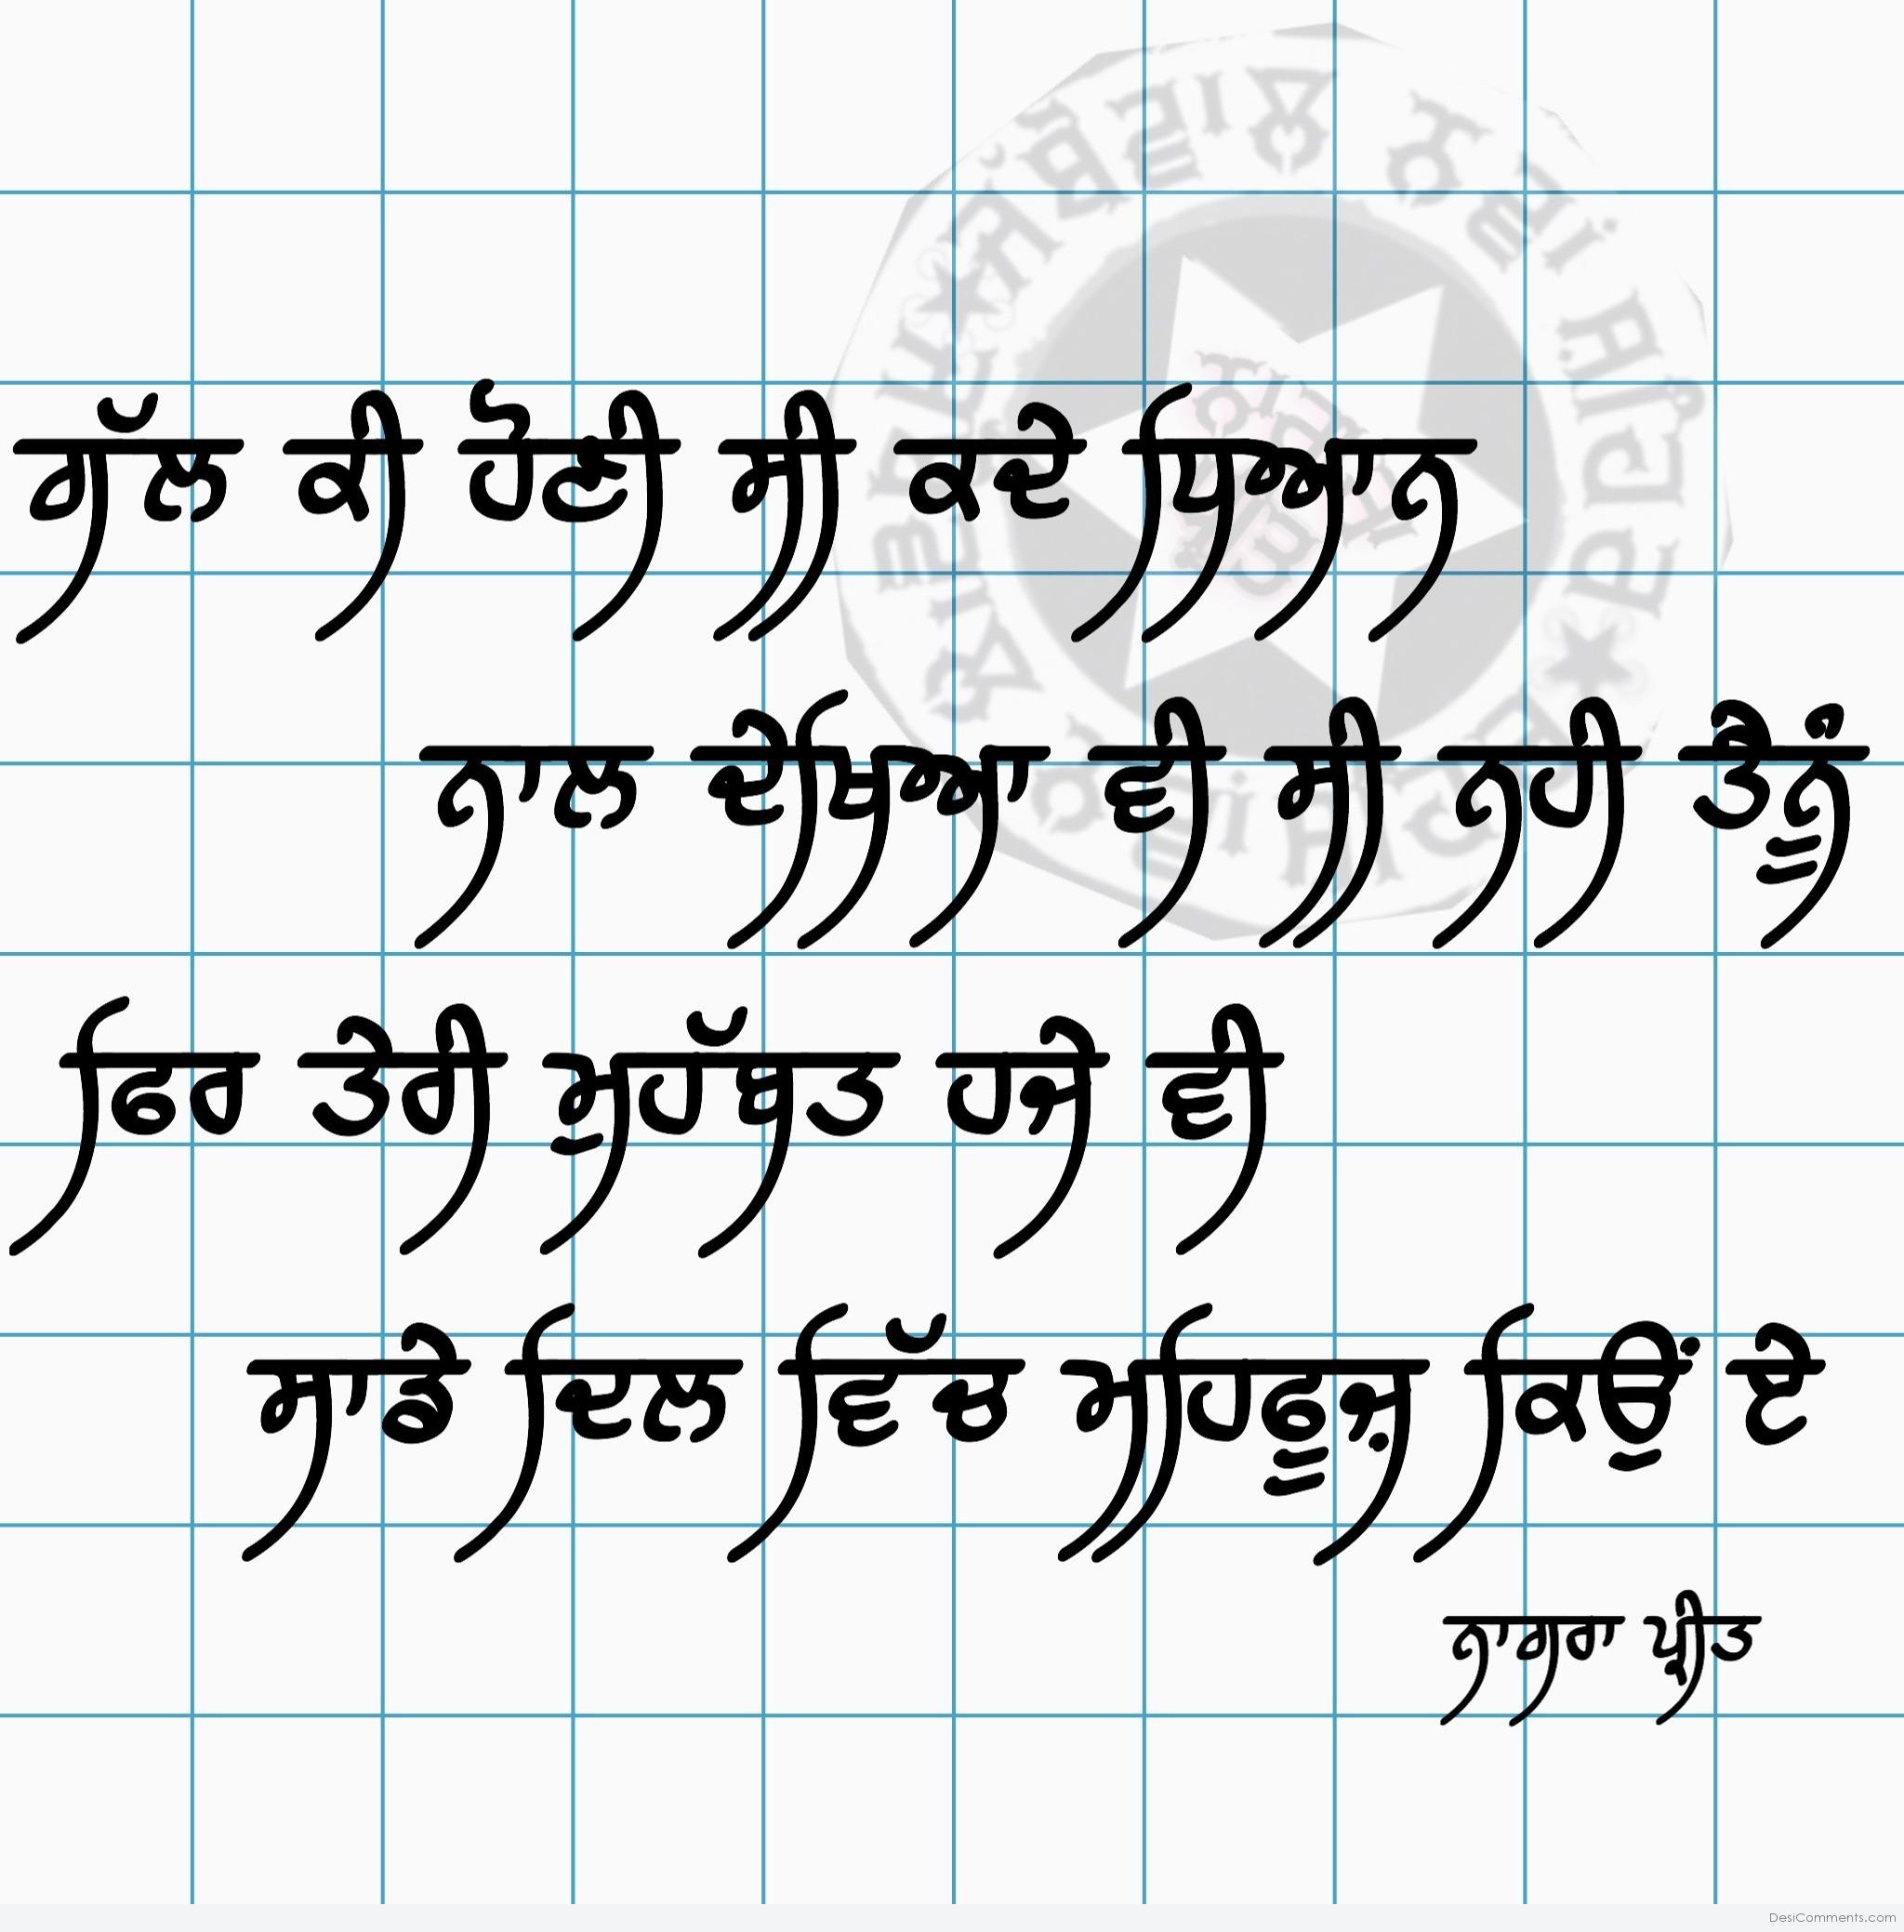 ਗੱਲ ਕੀ ਹੋਣੀ ਸੀ ਕਦੇ ਧਿਆਨ
ਨਾਲ ਦੇਖਿਆ ਵੀ ਸੀ ਨਹੀ ਤੈਨੂੰ
ਫਿਰ ਤੇਰੀ ਮੁਹੱਬਤ ਹਜੇ ਵੀ
ਸਾਡੇ ਦਿਲ ਵਿੱਚ ਮਹਿਫੂਜ਼ ਕਿਉਂ ਏ
ਨਾਗਰਾ ਪ੍ਰੀਤ
DesiComments.com